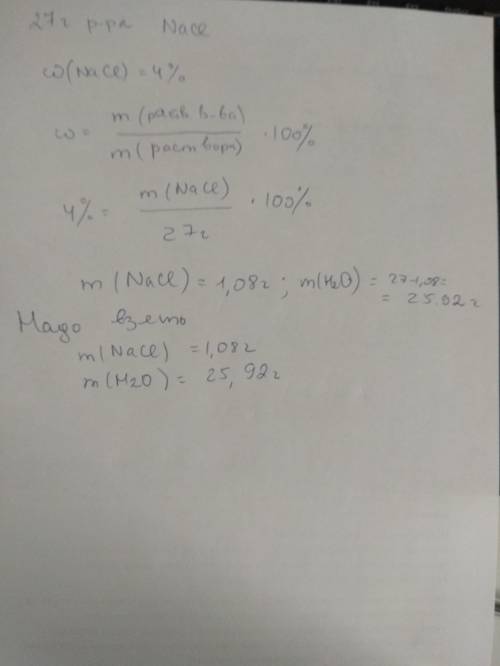 27г р-ра NaCl
ω(NaCl) = 4%
ω = m(раств. в-ва) / m(раствора) · 100%
4% = m(NaCl) / 27г · 100%
m(NaCl) = 1,08г ; m(H2O) = 27-1,08=
= 25.92г
Надо взеть
m(NaCl) = 1,08г
m(H2O) = 25,92г